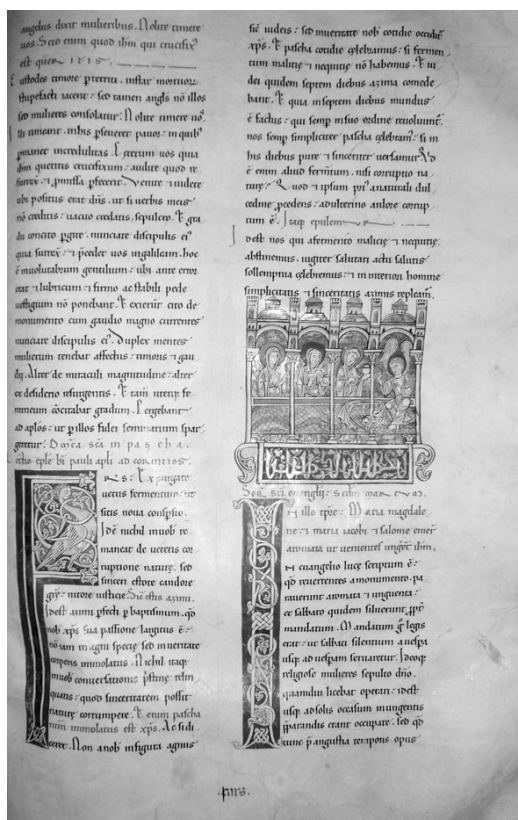 angelus dixit mulieribus. Nolite timere
uos. Scio enim quod ihm qui crucifix'
est
custodes timore pterriti. instar mortuor
stupefacti iacent: sed tamen angls nō illos
sed mulieres consolatur. Nolite timere uos.
Illi timeant. inhis pseueret pauor: in quib'
pmanet incredulitas. Ceterum uos quia
ihm queritis crucifixum: audite quod re
surrex: ⁊ pmissa pfecerit. Venite ⁊ uidete
ubi positus erat dns. ut si uerbis meis
nō creditis: uacuo credatis sepulcro. Et gra
du concito pgite. nunciate discipulis ei'
quia surrex: ⁊ pcedet uos ingalileam. hoc
ē inuolutabrum gentilium: ubi ante error
erat ⁊ lubricum ⁊ firmo ac stabili pede
uestigium nō ponebant. Et exierunt cito de
monumento cum gaudio magno currentes
nunciare discipulis ei'. Duplex mentes
mulierum tenebat affectus: timoris ⁊ gau
dii. Alter de miraculi magnitudine: alter
ex desiderio resurgentis. Et tam uterq; fe
mineum cōcitabat gradum. Pergebant
ad aplos: ut p illos fidei seminarium spar
geretur. Domca sca in pascha.
lectio eple bi pauli apli ad corintios.
RS: Expurgate
uetus fermentum ut
sitis noua conspsio.
Idē nichil inuob re
maneat de ueteris cor
ruptione nature: sed
sinceri estote candore
nitore iusticie. Sic estis azimi.
Idest azimi pfecti p baptismum. qd
nob xps sua passione largitus ē:
nō iam in agni specie sed inueritate
corporis immolatus. Nichil itaq;
inuob conuersationis pstine relin
quatis: quod sinceritatem possit
nature corrumpere. Et enim pascha
nrm immolatus est xps. Ac si di
ceret. Non anob infigura agnus
sic iudeis: sed inueritate nob cotidie occidit'
xps. Et pascha cotidie celebramus: si fermen
tum malicie ⁊ nequitie nō habemus. Et iu
dei quidem septem diebus azima comede
bant. Et quia inseptem diebus mundus
ē factus: qui semp insuo ordine reuoluitur.
nos semp simpliciter pascha celebram': si in
his diebus pure ⁊ sinceriter uersamur. Qd
ē enim aliud fermtum. nisi corruptio na
ture: Quod ⁊ ipsum pri' anaturali dul
cedine pcedens: adulterino ardore corrup
tum ē. Itaq; epulem
Idest nos qui afermento malicie ⁊ nequitie
abstinemus. iugiter salutari actu salutis
sollempnia celebremus: ⁊ in interiori homine
simplicitatis ⁊ sinceritatis azimis repleam'.
scī euanglii: scdm marcum.
IN illo tpre: Maria magdale
ne ⁊ maria iacobi ⁊ salome emer
aromata ut uenientes ungeret ihm.
In euangelio luce scriptum ē:
qd reuertentes amonumento. pa
rauerunt aromata ⁊ unguenta:
et sabbato quidem siluerunt ppt
mandatum. Mandatum g legis
erat: ut sabbati silentium auespa
usq; ad uespam seruaretur. Ideoq;
religiose mulieres sepulto dño.
quamdiu licebat operari: idest
usq; adsolis occasum unguentis
pparandis erant occupate. sed qd
tunc p angustia temporis opus